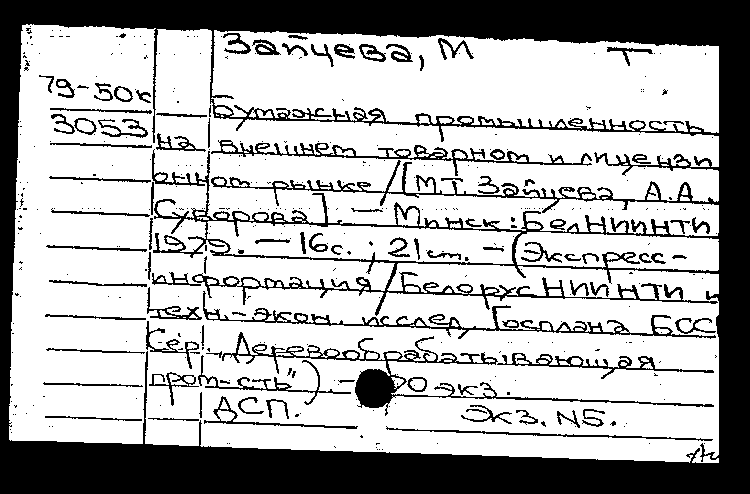 Зайцева, М Т
79-50к
3053
Бумажная промышленность
на внешнем товарном и лицензи
онном рынке / [М.Т. Зайцева, А.А.
Суворова]. — Минск: БелНИИНТИ
1979. — 16с.; 21 см. — (Экспресс-
информация / Белорус НИИНТИ и
техн.-экон. исслед. Госплана БСС
Сер. „Деревообрабатывающая
пром-сть") — 0 экз.
ДСП. Экз. N5.